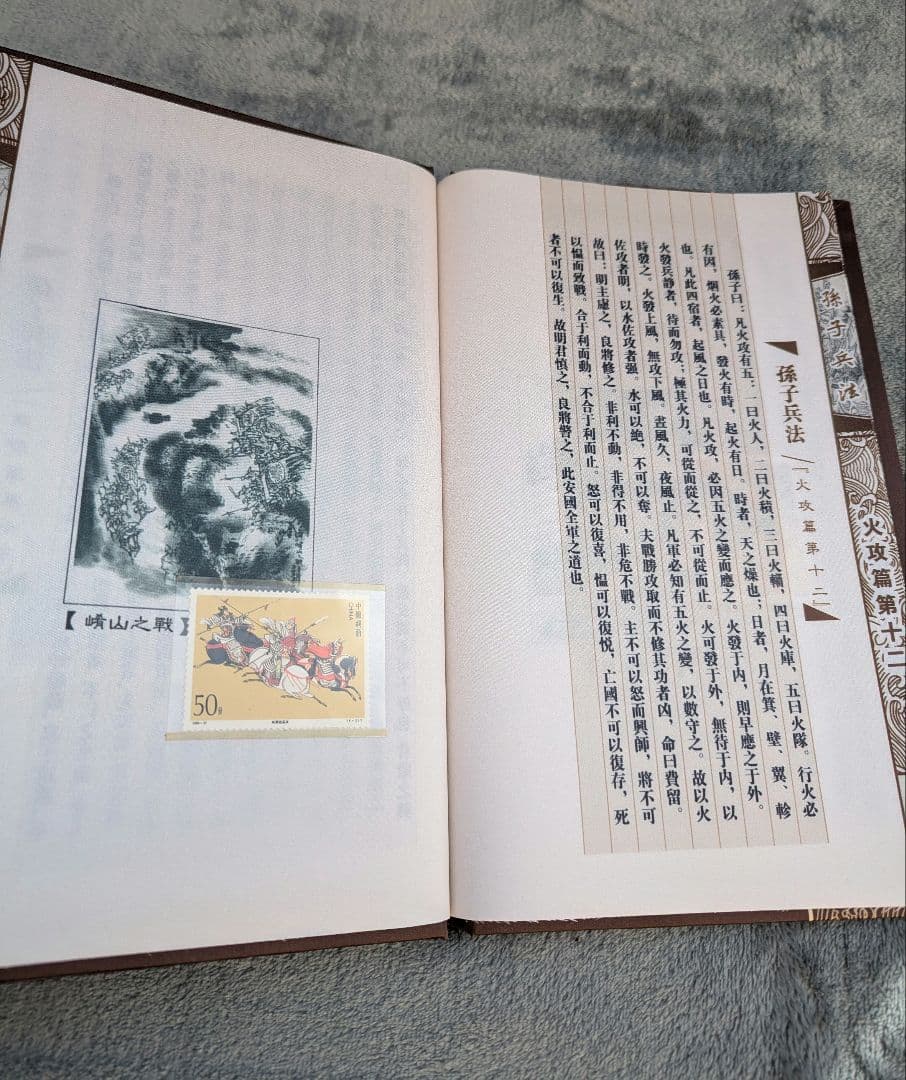 孫子兵法
火攻篇第十二
孫子兵法
『火攻篇第十二』
孫子曰：凡火攻有五：一曰火人，二曰火積，三曰火輜，四曰火庫，五曰火隊。行火必
有因，烟火必素具，發火有時，起火有日。時者，天之燥也；日者，月在箕、壁、翼、軫
也。凡此四宿者，起風之日也。凡火攻，必因五火之變而應之。火發于内，則早應之于外。
火發兵靜者，待而勿攻；極其火力，可從而從之，不可從而止。火可發于外，無待于内，以
時發之。火發上風，無攻下風。晝風久，夜風止。凡軍必知有五火之變，以數守之。故以火
佐攻者明，以水佐攻者强。水可以絶，不可以奪。夫戰勝攻取而不修其功者凶，命曰費留。
故曰：明主慮之，良將修之。非利不動，非得不用，非危不戰。主不可以怒而興師，將不可
以愠而致戰。合于利而動，不合于利而止。怒可以復喜，愠可以復悦，亡國不可以復存，死
者不可以復生。故明君慎之，良將警之，此安國全軍之道也。
【崤山之戰】
中國郵政
CHINA
50分